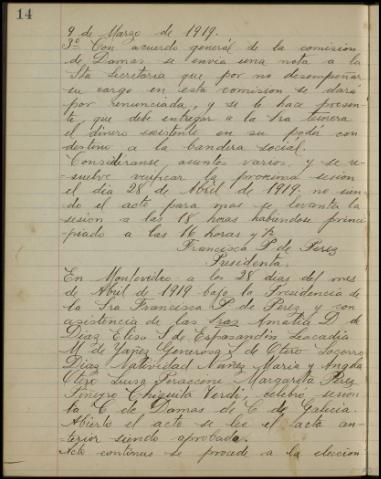 14
9 de Marzo de 1919.
3º Con acuerdo general de la comision
de Damas se envia una nota a la
Sta Secretaria que por no desempeñar
su cargo en esta comision se dará
por renunciada, y se le hace presen-
te, que debe entregar a la Sra
el dinero existente en su poder con
destino a la bandera social.
Considéranse, asuntos varios, y se re-
suelve verificar la proxima sesion
el dia 28 de Abril de 1919, no sien-
do el acto para mas se levanta la
sesion a las 18 horas habiendose princi-
piado a las 16 horas y ½
Francisca P de Perez
Presidenta.
En Montevideo a los 28 dias del mes
de Abril de 1919 bajo la Presidencia de
la Sra Francisca P. de Perez y con
asistencia de las Sras Amalia D. de
Diaz Elisa S de Espasandin Leocadia
M. de Yañez Generosa de Otero Socorro
Diaz Natividad Nuñez Maria y Angela
Otero Luisa Margarita Perez
Chiquita Verde, celebró sesion
la C de Damas de C de Galicia.
Abierto el acto se lee el acta an-
terior siendo aprobada.
Acto continuo se procede a la eleccion